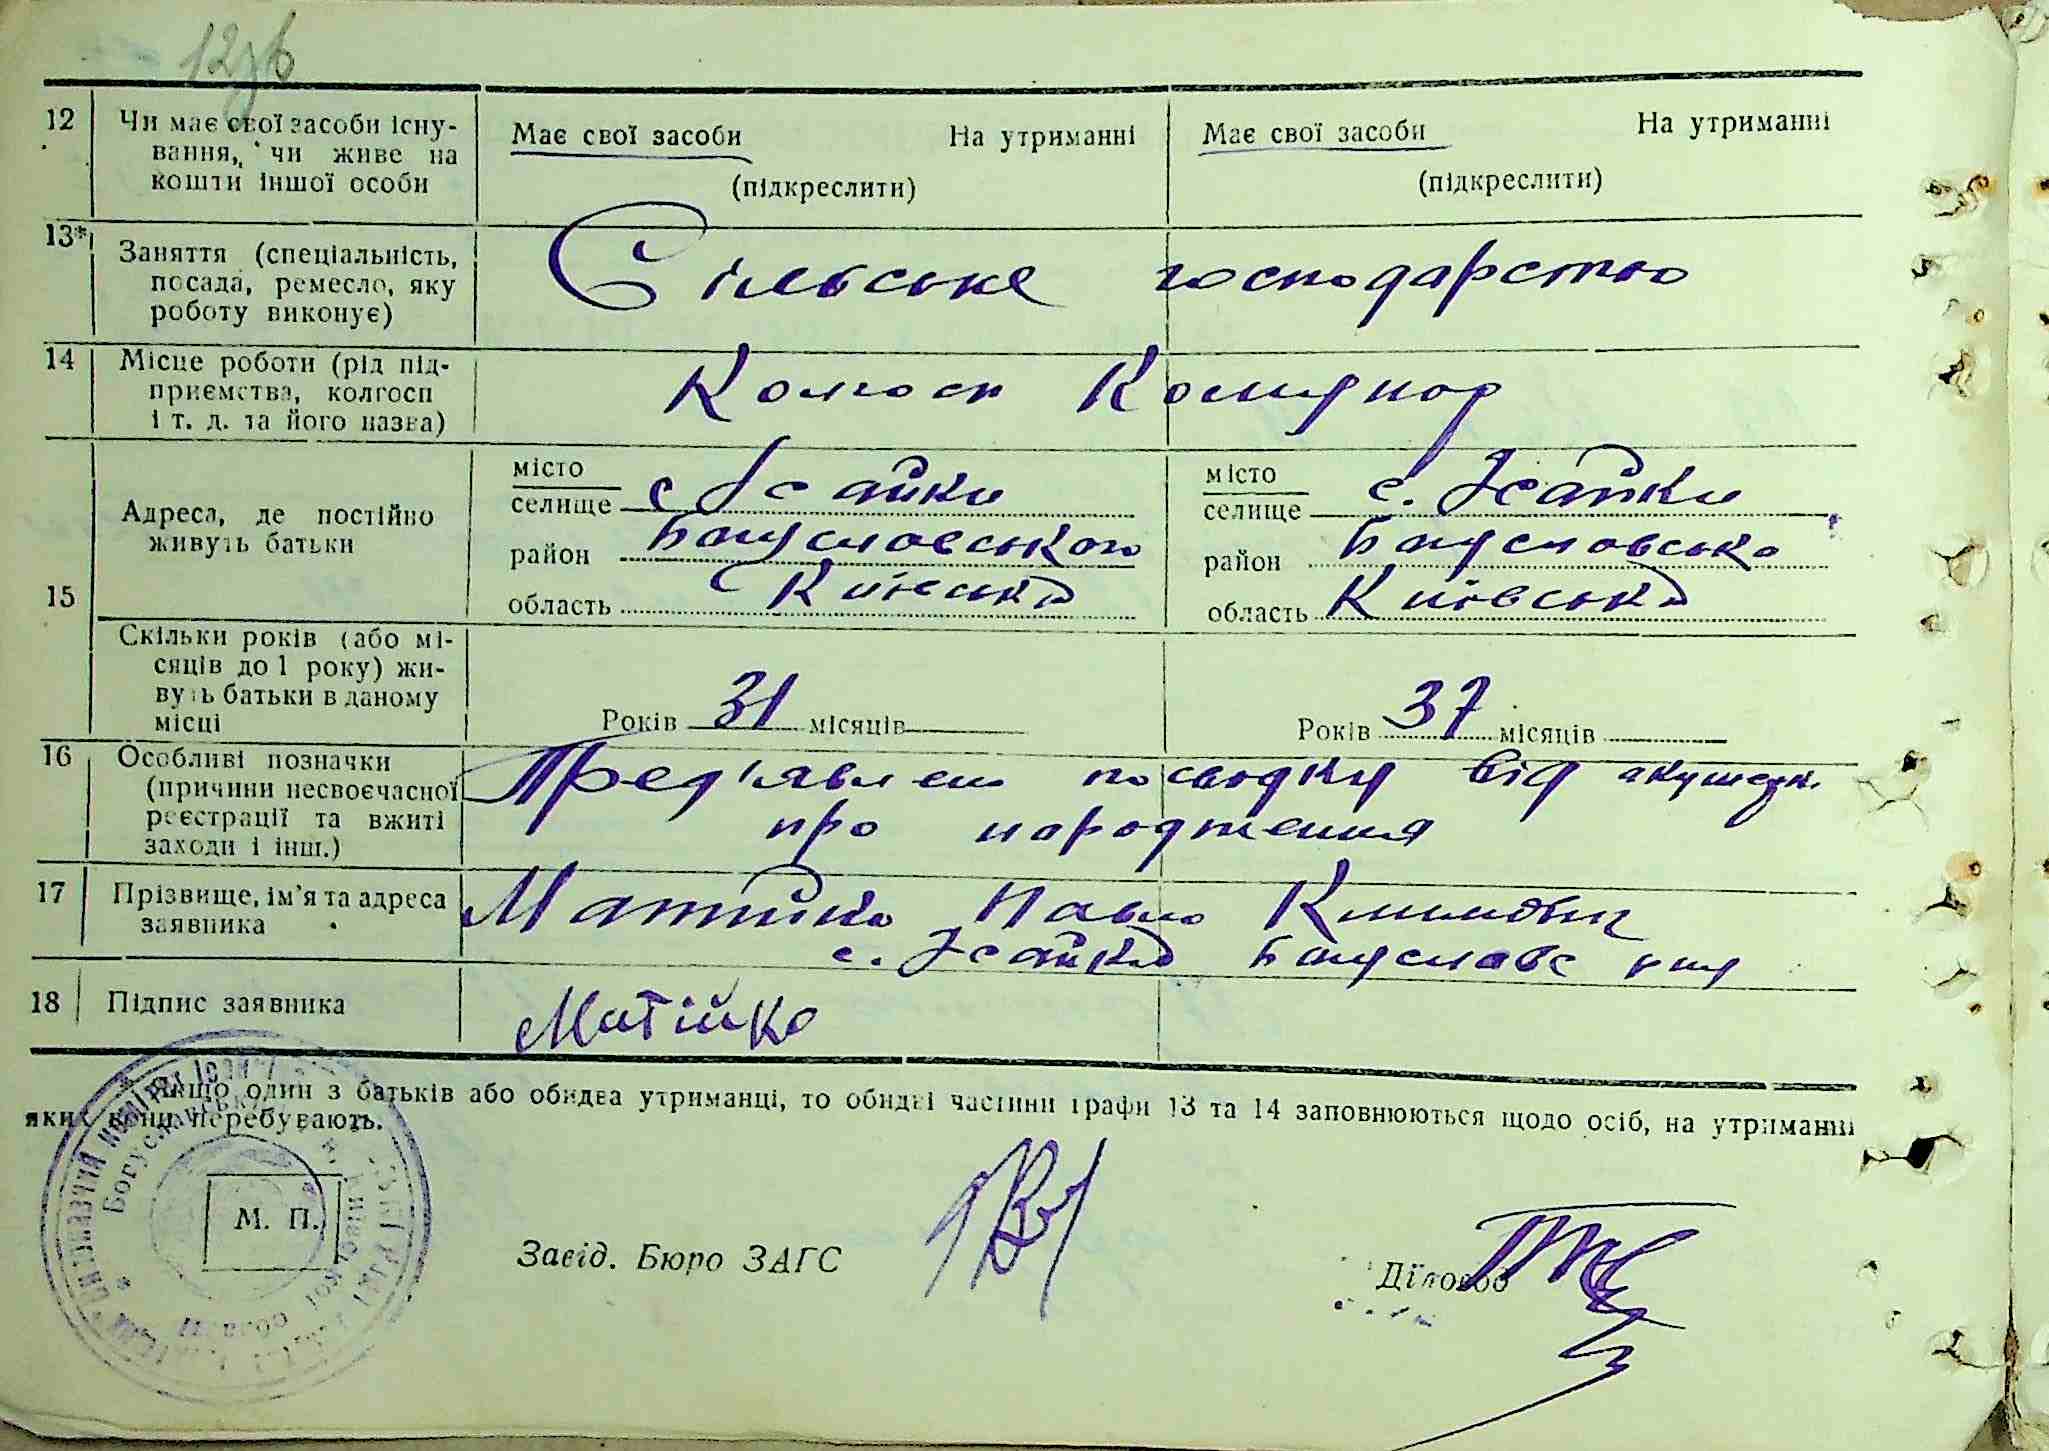 12зв
12 Чи має свої засоби існу- Має свої засоби На утриманні Має свої засоби На утриманні
вання, чи живе на
кошти іншої особи (підкреслити) (підкреслити)
13* Заняття (спеціальність, Сільське господарство
посада, ремесло, яку
роботу виконує)
14 Місце роботи (рід під- Колгосп Комунар
приємства, колгосп
і т. д. та його назва)
15 Адреса, де постійно
живуть батьки
місто місто
селище с Ісайки селище с. Ісайки
район Богуславського район Богуславсько
область Київська область Київська
Скільки років (або мі-
сяців до 1 року) жи-
вуть батьки в даному
місці Років 31 місяців Років 37 місяців
16 Особливі позначки Пред'явлено посвідку від акушерк.
(причини несвоєчасної про народження
реєстрації та вжиті
заходи і інш.)
17 Прізвище, ім'я та адреса Матійко Павло Климович
заявника с. Ісайки Богуславс
18 Підпис заявника Матійко
Якщо один з батьків або обидва утриманці, то обидві частини графи 13 та 14 заповнюються щодо осіб, на утриманні
яких вони перебувають.
М. П.
Завід. Бюро ЗАГС
Діловод